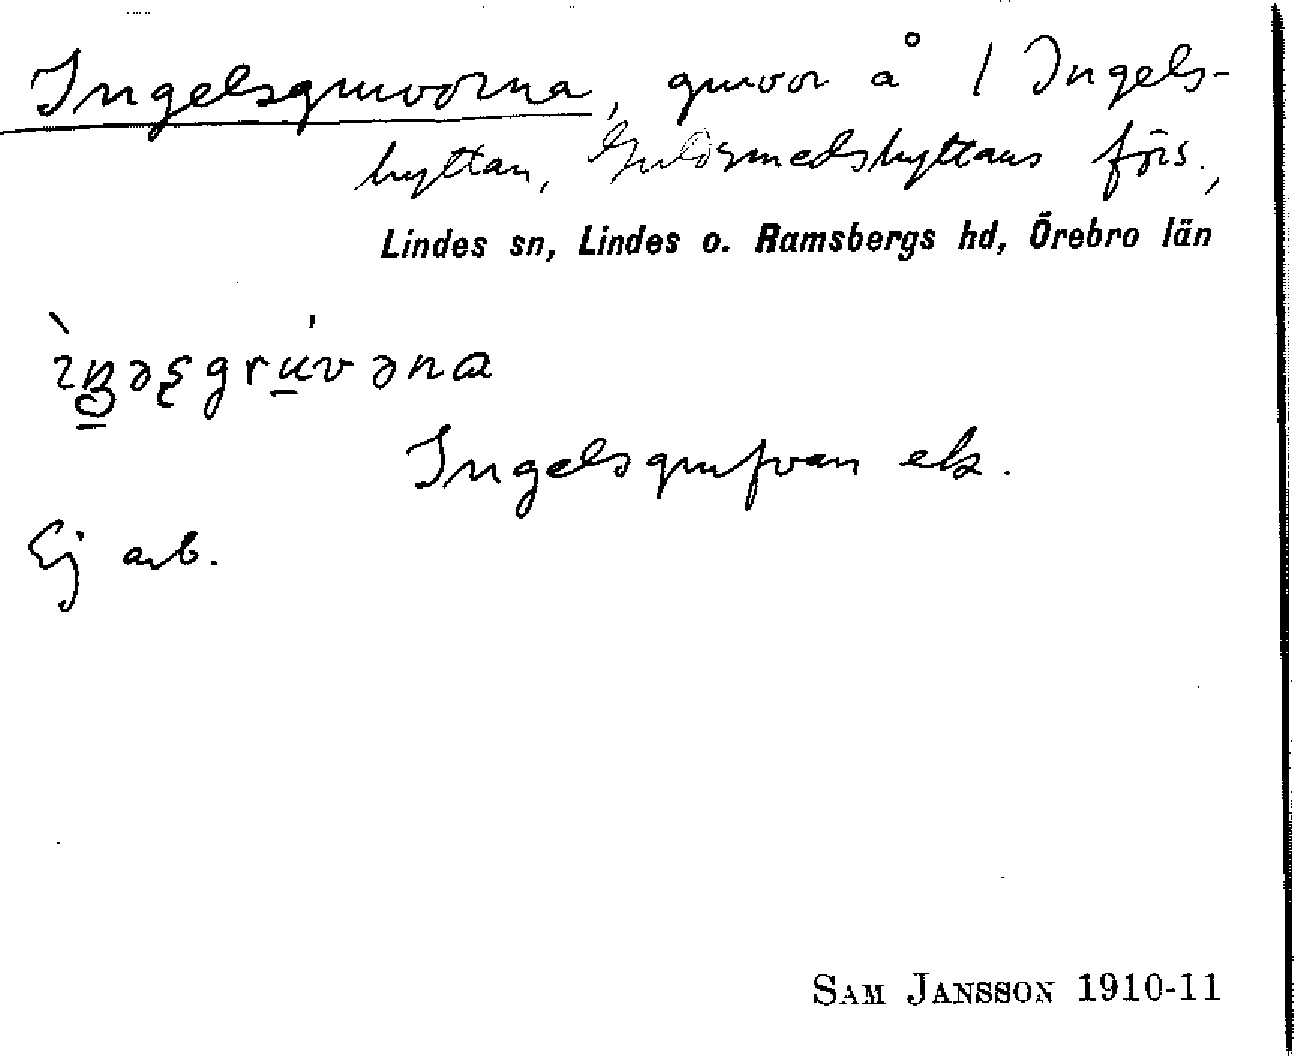 Ingelsgruvorna, gruvor å / Ingels-
hyttan, Guldsmedshyttans förs.,
Lindes sn, Lindes o. Ramsbergs hd, Örebro län
Ingelsgrufvan ek.
Ej arb.
SAM JANSSON 1910-11